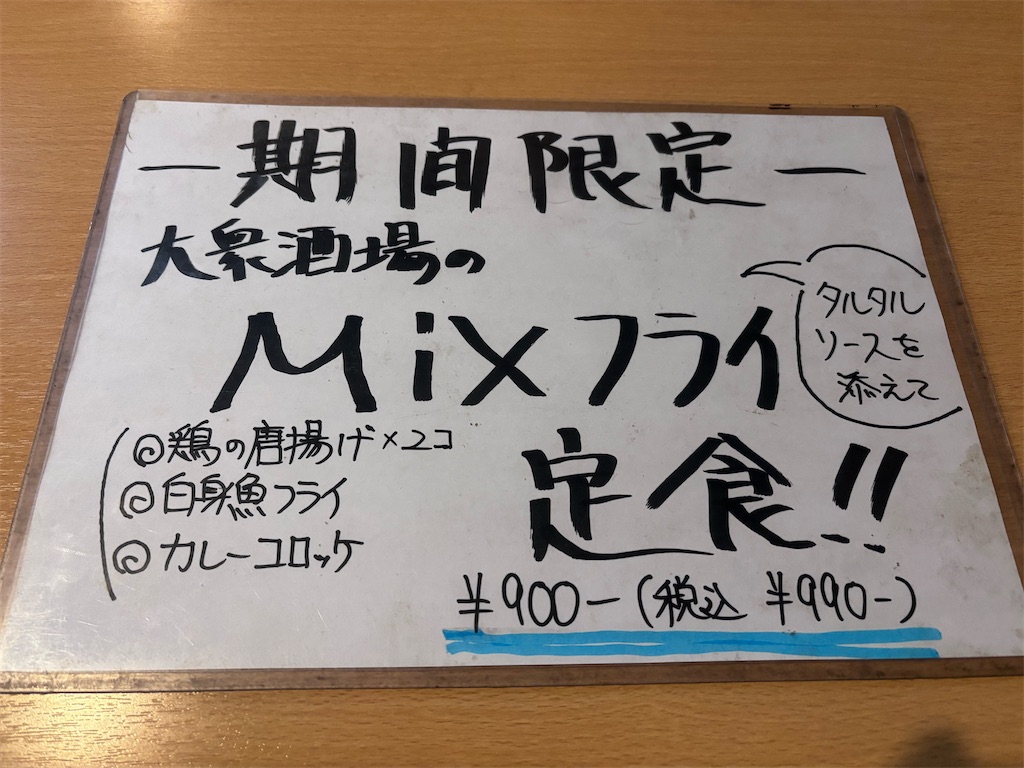 ー期間限定ー
大衆酒場の
Mixフライ
タルタル
ソースを
添えて
◎鶏の唐揚げ×2コ
◎白身魚フライ
◎カレーコロッケ
定食!!
¥900-(税込 ¥990-)